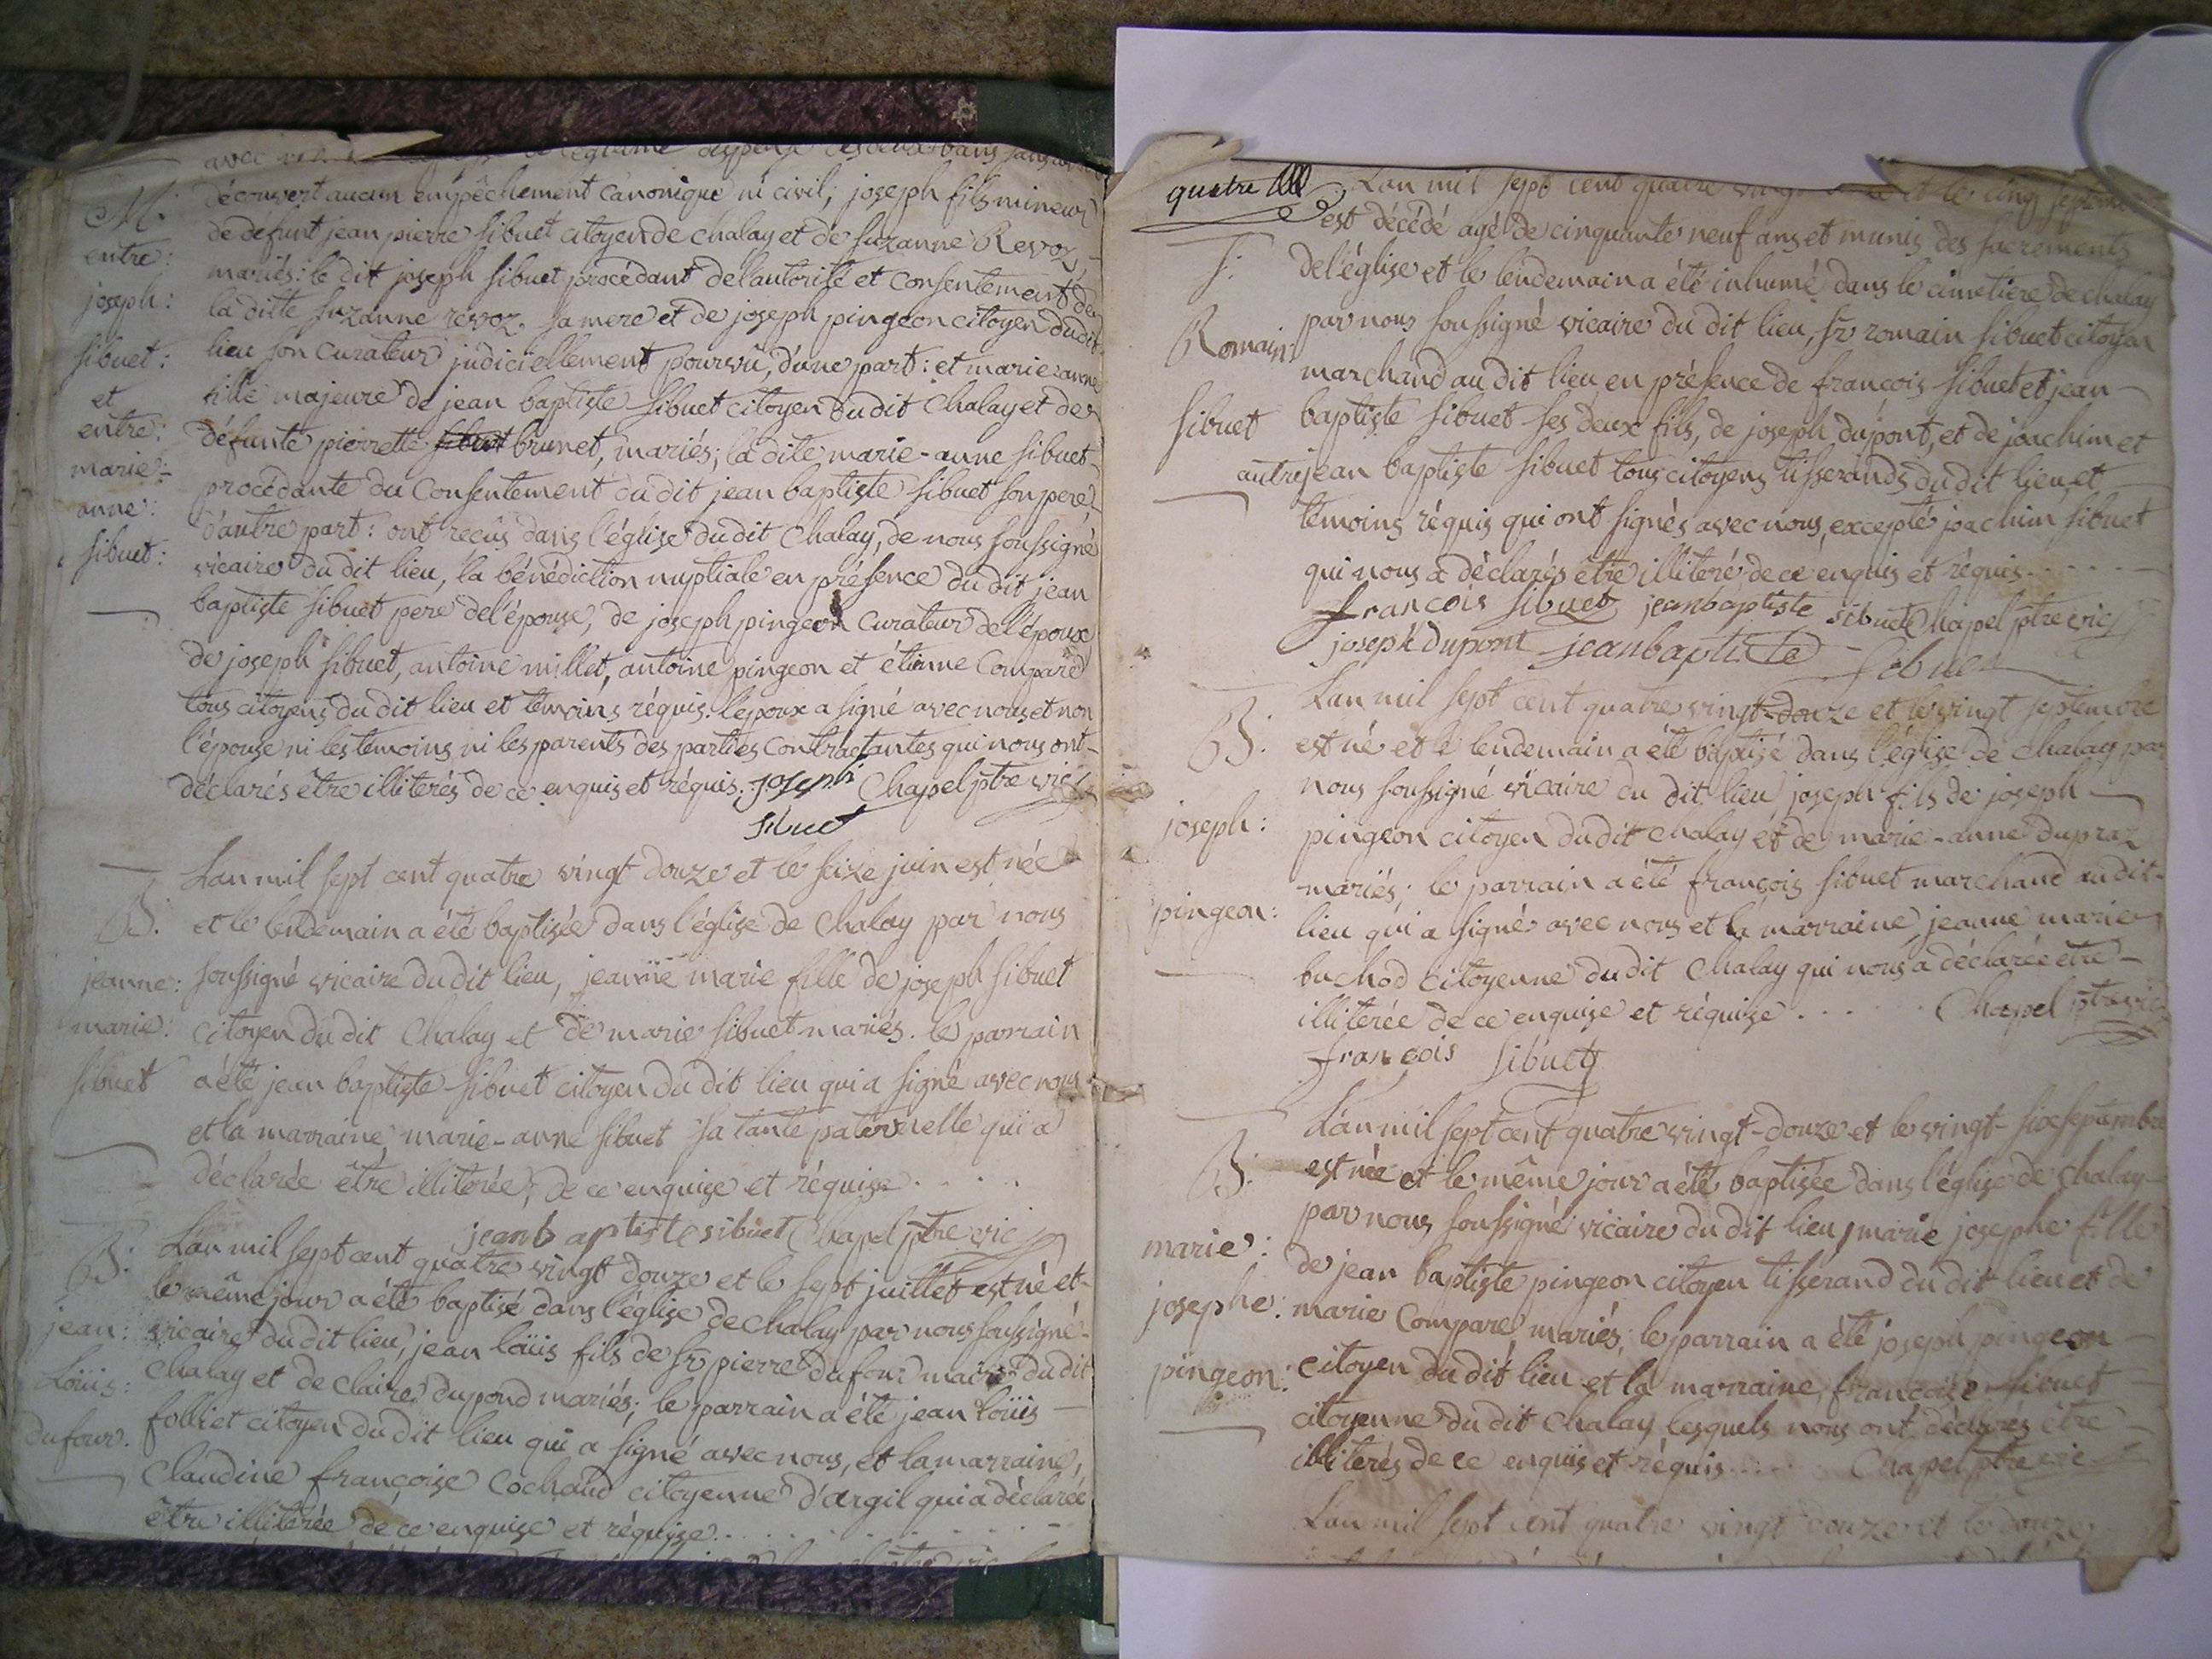 avec légitime dispense
M: découvert aucun empêchement canonique ni civil; joseph fils mineur
de défunt jean pierre sibuet citoyen de chalay et de suzanne Revoz,
entre: mariés: le dit joseph sibuet procédant de l'autorité et consentement de
joseph: la ditte suzanne revoz. sa mere et de joseph pingeon citoyen du dit
sibuet: lieu son curateur judiciellement pourvû, d'une part: et marie anne
et fille majeure de jean baptiste sibuet citoyen du dit Chalay et de
entre: défunte pierrette sibuet brunet, mariés; la dite marie-anne sibuet
marie: procédante du Consentement du dit jean baptiste sibuet son pere
anne: d'autre part: ont reçûs dans l'église du dit Chalay, de nous soussigné
sibuet: vicaire du dit lieu, la bénédiction nuptiale en présence du dit jean
baptiste sibuet pere de l'épouse, de joseph pingeon curateur de l'époux
de joseph sibuet, antoine millet, antoine pingeon et étienne Compare
tous citoyens du dit lieu et temoins réquis. l'epoux a signé avec nous et non
l'épouse ni les temoins ni les parents des parties contractantes qui nous ont
déclarés être illiterés de ce enquis et réquis. joseph Chapel ptre vic
sibuet
Lan mil sept cent quatre vingt douze et le seize juin est née
B: et le lendemain a été baptisée dans l'église de Chalay par nous
jeanne: soussigné vicaire du dit lieu, jeanne marie fille de joseph sibuet
marie: citoyen du dit Chalay et de marie sibuet mariés. le parrain
sibuet a été jean baptiste sibuet citoyen du dit lieu qui a signé avec nous
et la marraine marie-anne sibuet sa tante paternelle qui a
déclarée être illiterée, de ce enquise et réquise . . . .
jean baptiste sibuet Chapel ptre vic
B: Lan mil sept cent quatre vingt douze et le sept juillet est né et
le même jour a été baptisé dans l'église de chalay par nous soussigné
jean: vicaire du dit lieu, jean loüis fils de sr pierre dufour maire du dit
Loüis: chalay et de claire dupond mariés; le parrain a été jean loüis
dufour. folliet citoyen du dit lieu qui a signé avec nous, et la marraine,
Claudine françoise Cochand citoyenne d'argil qui a déclarée
être illiterée de ce enquise et réquise. . . . . . .
quatre Lan mil sept cent quatre vingt et le cinq septembre
est décédé agé de cinquante neuf ans et munis des sacrements
S: de l'église et le lendemain a été inhumé dans le cimetiere de chalay
par nous soussigné vicaire du dit lieu, sr romain sibuet citoyen
Romain: marchand au dit lieu, en présence de françois sibuet et jean
sibuet baptiste sibuet ses deux fils, de joseph dupont, et de joachim et
autre jean baptiste sibuet tous citoyens tisserands du dit lieu, et
temoins réquis qui ont signés avec nous, excepté joachim sibuet
qui nous a déclarés être illiteré, de ce enquis et réquis . . . . .
francois sibuet jeanbaptiste sibuet Chapel ptre vic
joseph dupont jeanbaptiste sibuet
Lan mil sept cent quatre vingt-douze et le vingt septembre
B: est né et le lendemain a été baptisé dans l'église de chalay par
nous soussigné vicaire du dit lieu joseph fils de joseph
joseph: pingeon citoyen du dit chalay et de marie-anne dupraz
mariés; le parrain a été françois sibuet marchand au dit
pingeon: lieu qui a signé avec nous et la marraine, jeanne marie
buchod citoyenne du dit Chalay qui nous a déclarée être
illiterée de ce enquise et réquise . . . . Chapel ptre vic
françois sibuet
Lan mil sept cent quatre vingt-douze et le vingt-six septembre
B: est née et le même jour a été baptisée dans l'église de chalay
par nous soussigné vicaire du dit lieu, marie josephe fille
marie: de jean baptiste pingeon citoyen tisserand du dit lieu et de
josephe: marie Compare mariés; le parrain a été joseph pingeon
pingeon: citoyen du dit lieu et la marraine, françoise sibuet
citoyenne du dit Chalay lesquels nous ont déclarés être
illiterés de ce enquis et réquis . . . . Chapel ptre vic
Lan mil sept cent quatre vingt douze et le douze